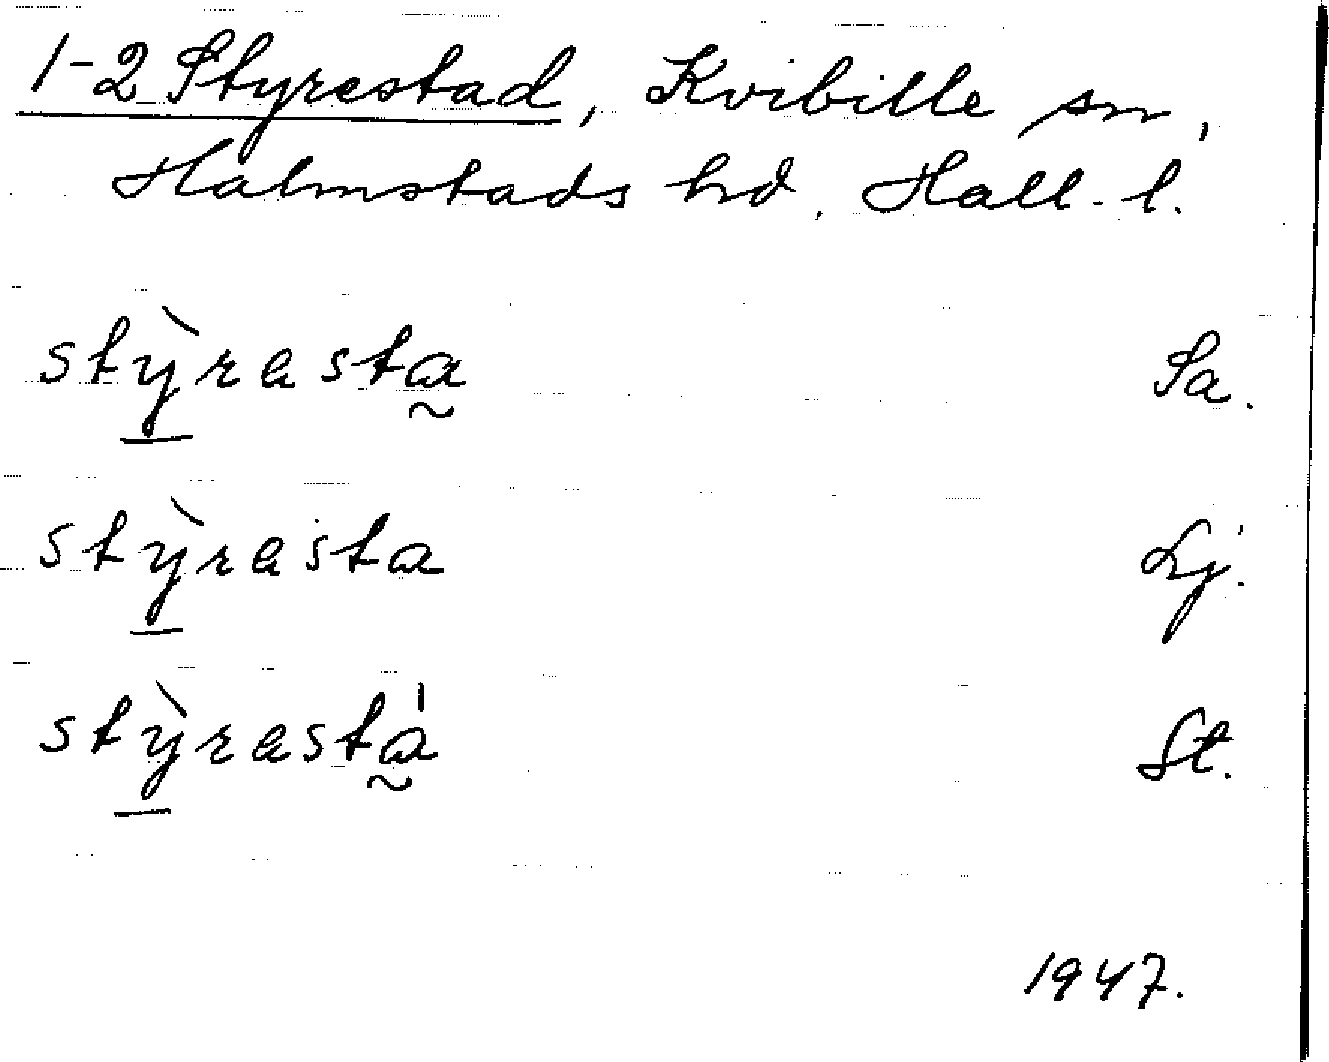 1-2 Styrestad, Kvibille sn,
Halmstads hd, Hall. l.
stỳ̲rəsta̰ Sa.
stỳ̲rəsta Lj.
stỳ̲rəstá̰ St.
1947.